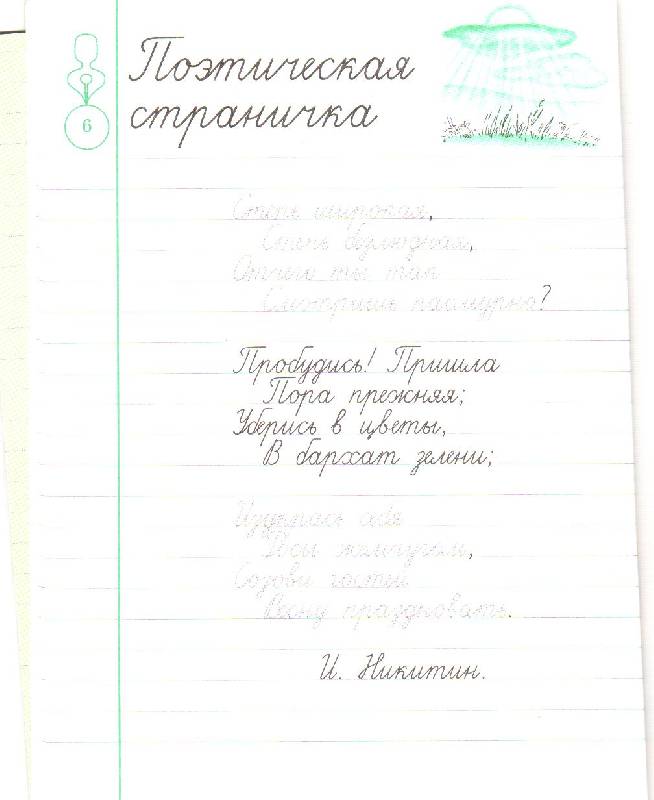 Поэтическая
страничка
6
Степь широкая,
Степь безлюдная,
Отчего ты так
Смотришь пасмурно?
Пробудись! Пришла
Пора прежняя;
Уберись в цветы,
В бархат зелени;
Изукрась себя
Росы жемчугом,
Созови гостей
Весну праздновать.
И. Никитин.